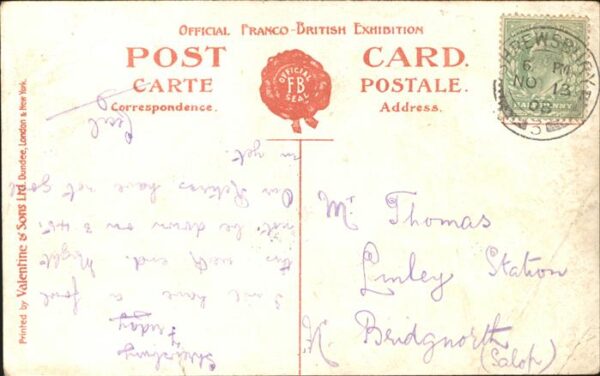 OFFICIAL FRANCO-BRITISH EXHIBITION
POST CARD.
CARTE POSTALE.
Correspondence. Address.
OFFICIAL
F B
SEAL
SHREWSBURY
6 PM
NO 13
08
HALFPENNY
Printed by Valentine & Sons Ltd. Dundee, London & New York.
Shrewsbury
Friday
I will have a
this week end. Might
not be down on 3.45.
Our Returns have not gone
in yet.
Cecil
Mr Thomas
Linley Station
Nr Bridgnorth
(Salop)